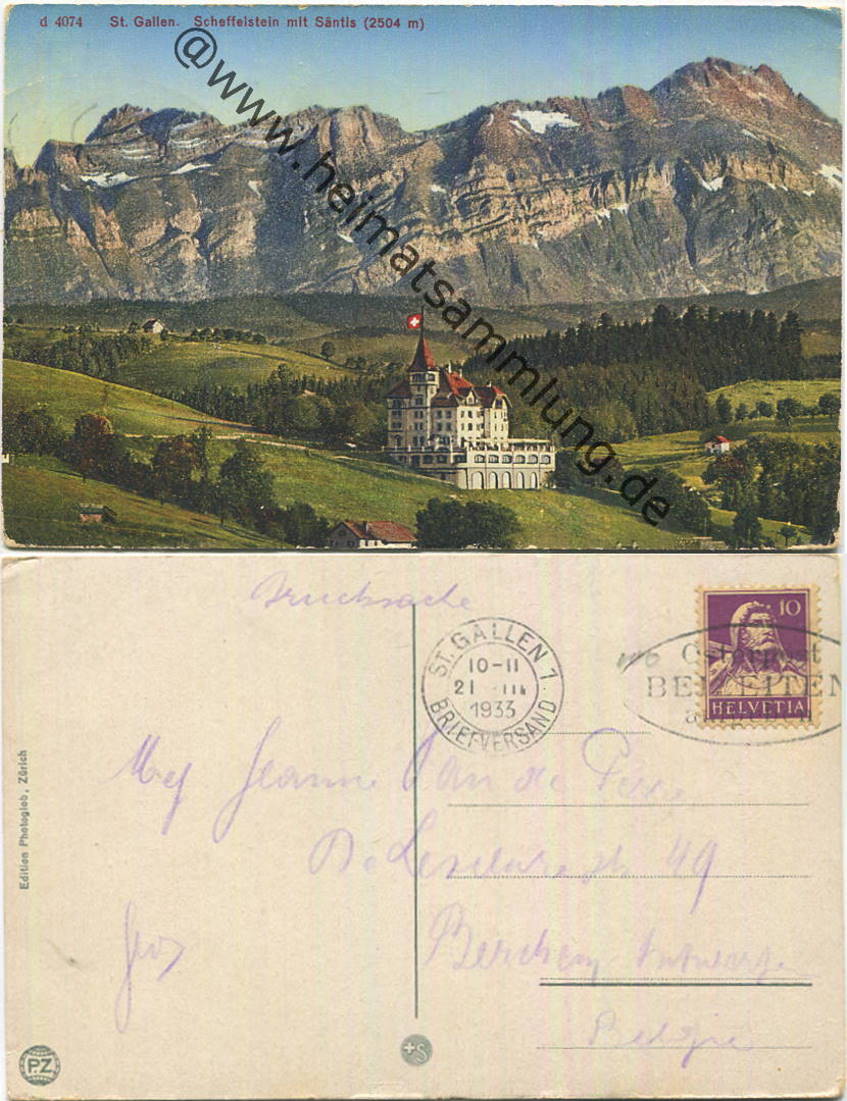 d 4074 St. Gallen. Scheffelstein mit Säntis (2504 m)
@www.heimatsammlung.de
Drucksache
ST. GALLEN 1
10-11
21 III
1933
BRIEFVERSAND
10
HELVETIA
Osterpost
BEIZEITEN
Mej Jeanne Van de
49
Berchem
Belgie
Edition Photoglob, Zürich
PZ
+S